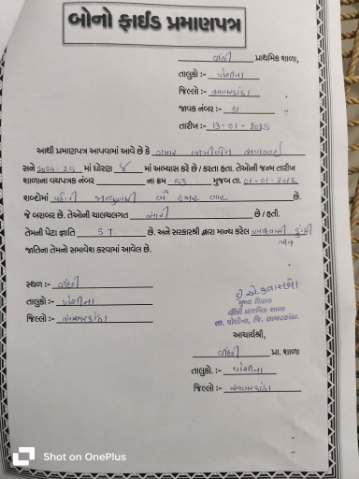 બોનો ફાઈડ પ્રમાણપત્ર
પ્રાથમિક શાળા,
તાલુકો :- પોશીના
જિલ્લો :- સાબરકાંઠા
જાવક નંબર :-
તારીખ :- 13-01-2025
આથી પ્રમાણપત્ર આપવામાં આવે છે કે,
સને 2024-25 માં ધોરણ માં અભ્યાસ કરે છે / કરતા હતા. તેઓની જન્મ તારીખ
શાળાના વયપત્રક નંબર ના ક્રમ 53 મુજબ તા. 01-01-2012
શબ્દોમાં પહેલી જાન્યુઆરી બે હજાર બાર છે.
જે બરાબર છે. તેઓની ચાલચલગત સારી છે / હતી.
તેમની પેટા જ્ઞાતિ S.T. છે. અને સરકારશ્રી દ્વારા માન્ય કરેલ
જાતિના તેમનો સમાવેશ કરવામાં આવેલ છે.
સ્થળ :-
તાલુકો :- પોશીના
જિલ્લો :- સાબરકાંઠા
મુખ્ય શિક્ષક
પ્રાથમિક શાળા
તા. પોશીના, જિ. સાબરકાંઠા.
આચાર્યશ્રી,
પ્રા. શાળા
તાલુકો. :- પોશીના
જિલ્લો :- સાબરકાંઠા
Shot on OnePlus